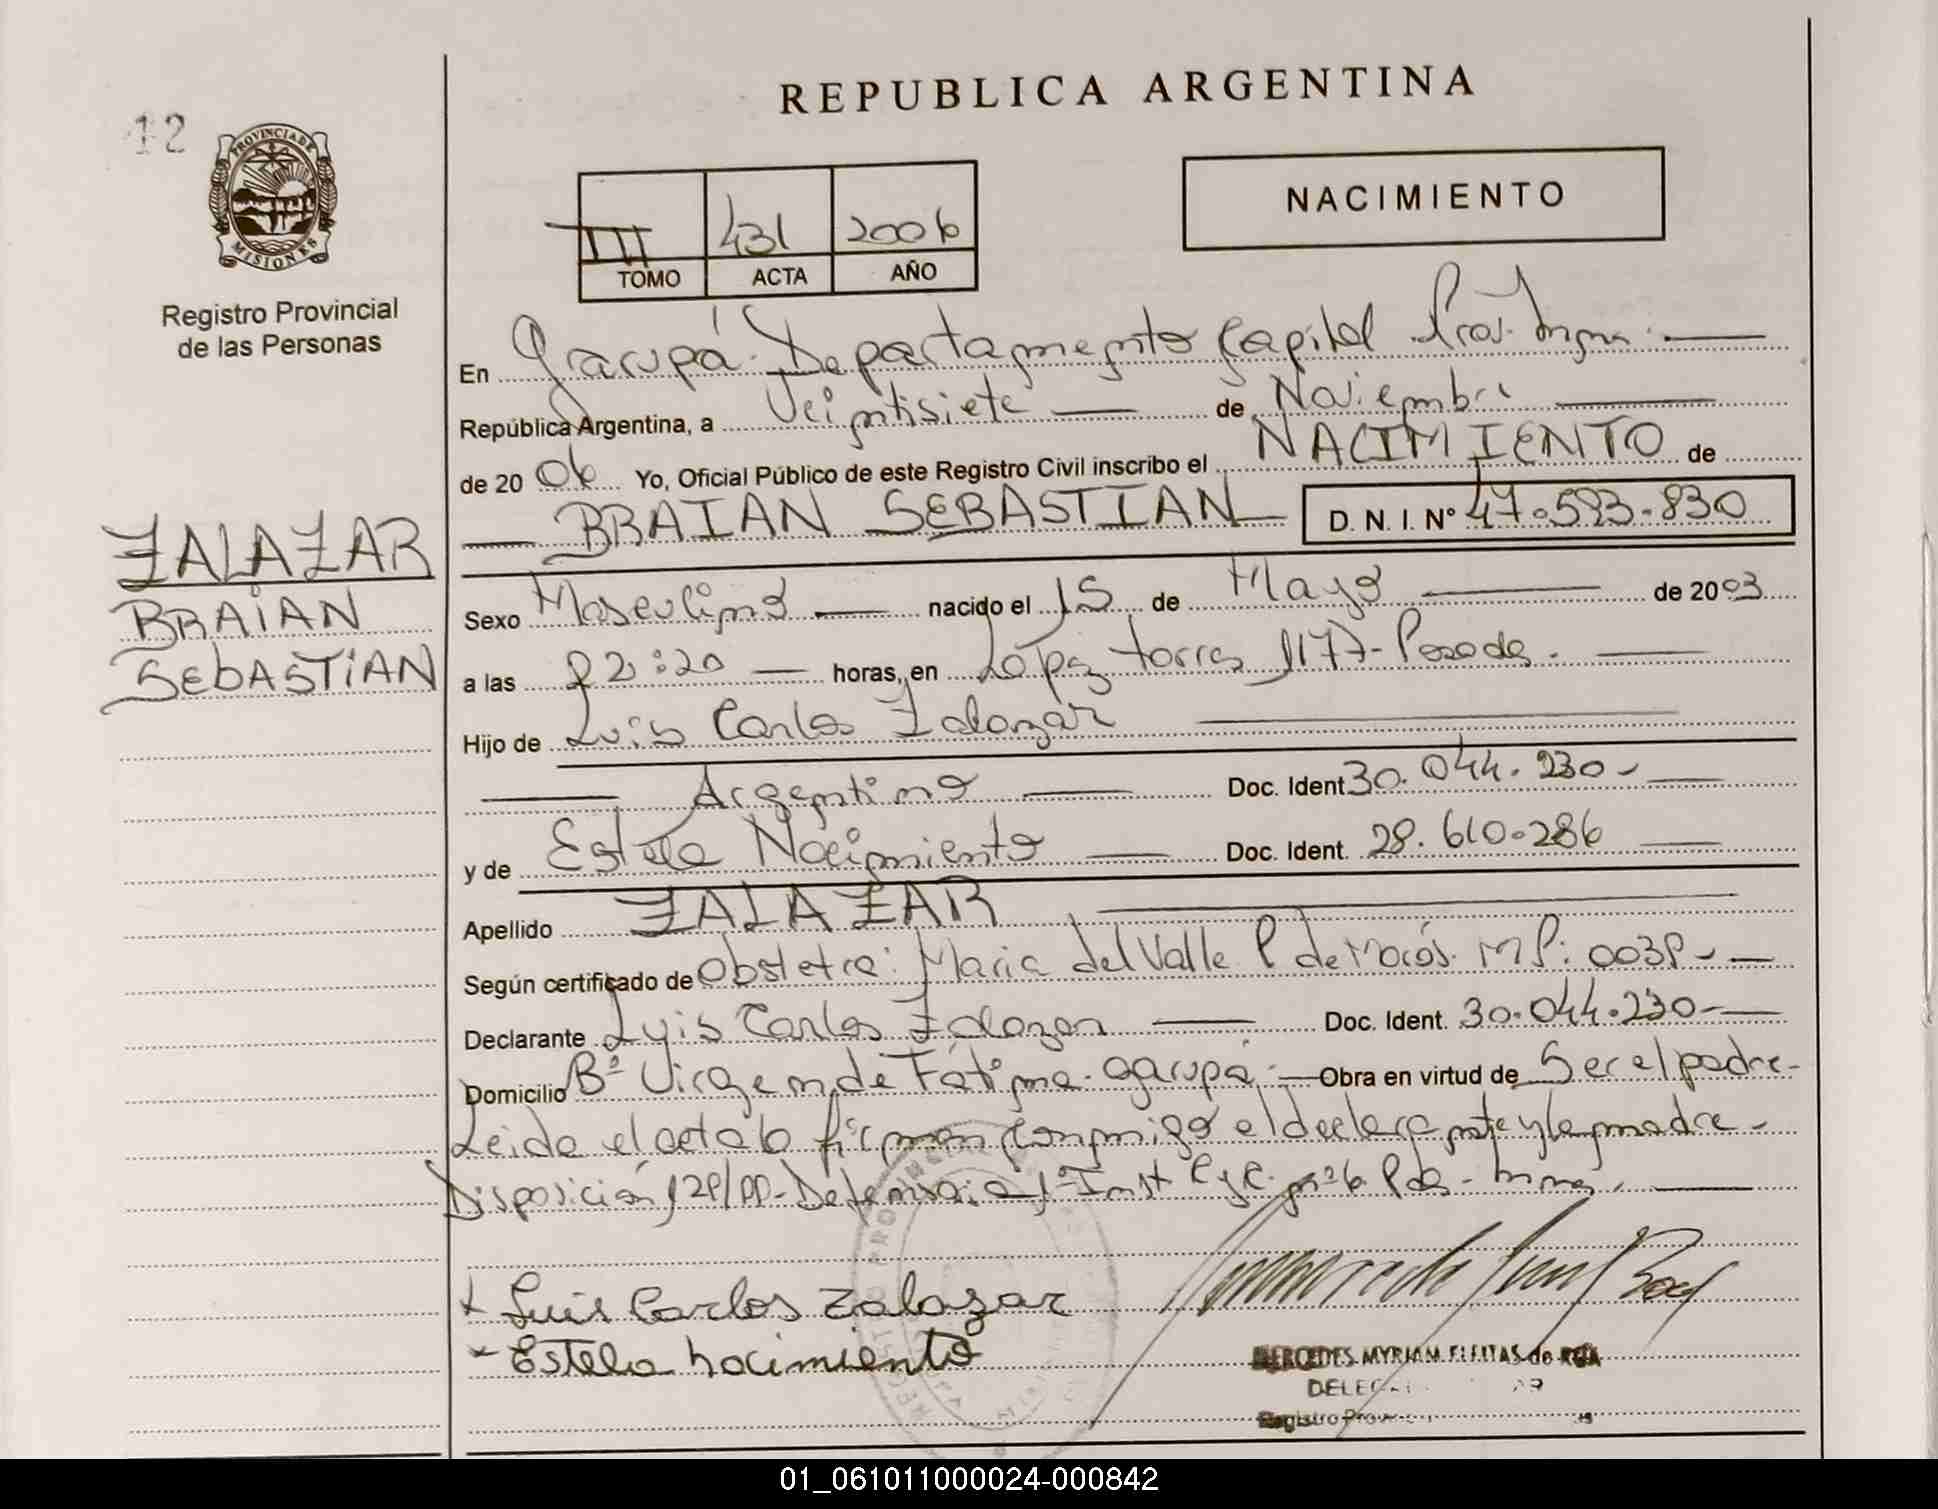 REPUBLICA ARGENTINA
12
PROVINCIA DE
MISIONES
Registro Provincial
de las Personas
III 431 2006
TOMO ACTA AÑO
NACIMIENTO
En Garupá Departamento Capital Prov. Mnes.
República Argentina, a Veintisiete de Noviembre
de 2006 Yo, Oficial Público de este Registro Civil inscribo el NACIMIENTO de
BRAIAN SEBASTIAN D. N. I. Nº 47.593.830
ZALAZAR
BRAIAN
SEBASTIAN
Sexo Masculino nacido el 15 de Mayo de 2003
a las 22:20 horas, en López Torres 1177- Posadas.
Hijo de Luis Carlos Zalazar
Argentino Doc. Ident 30.044.230-
y de Estela Nacimiento Doc. Ident. 28.610.286
Apellido ZALAZAR
Según certificado de Obstetra: Maria del Valle P de MP:
Declarante Luis Carlos Zalazar Doc. Ident. 30.044.230-
Domicilio Bº Virgen de Fátima - Garupá Obra en virtud de Ser el padre-
Leida el acta la firman conmigo el declarante y la madre-
Disposición Defensoria Inst nº 6 Pdas - Mnes.
x Luis Carlos Zalazar
x Estela nacimiento
MERCEDES MYRIAM FLEITAS de ROA
Registro
01_061011000024-000842